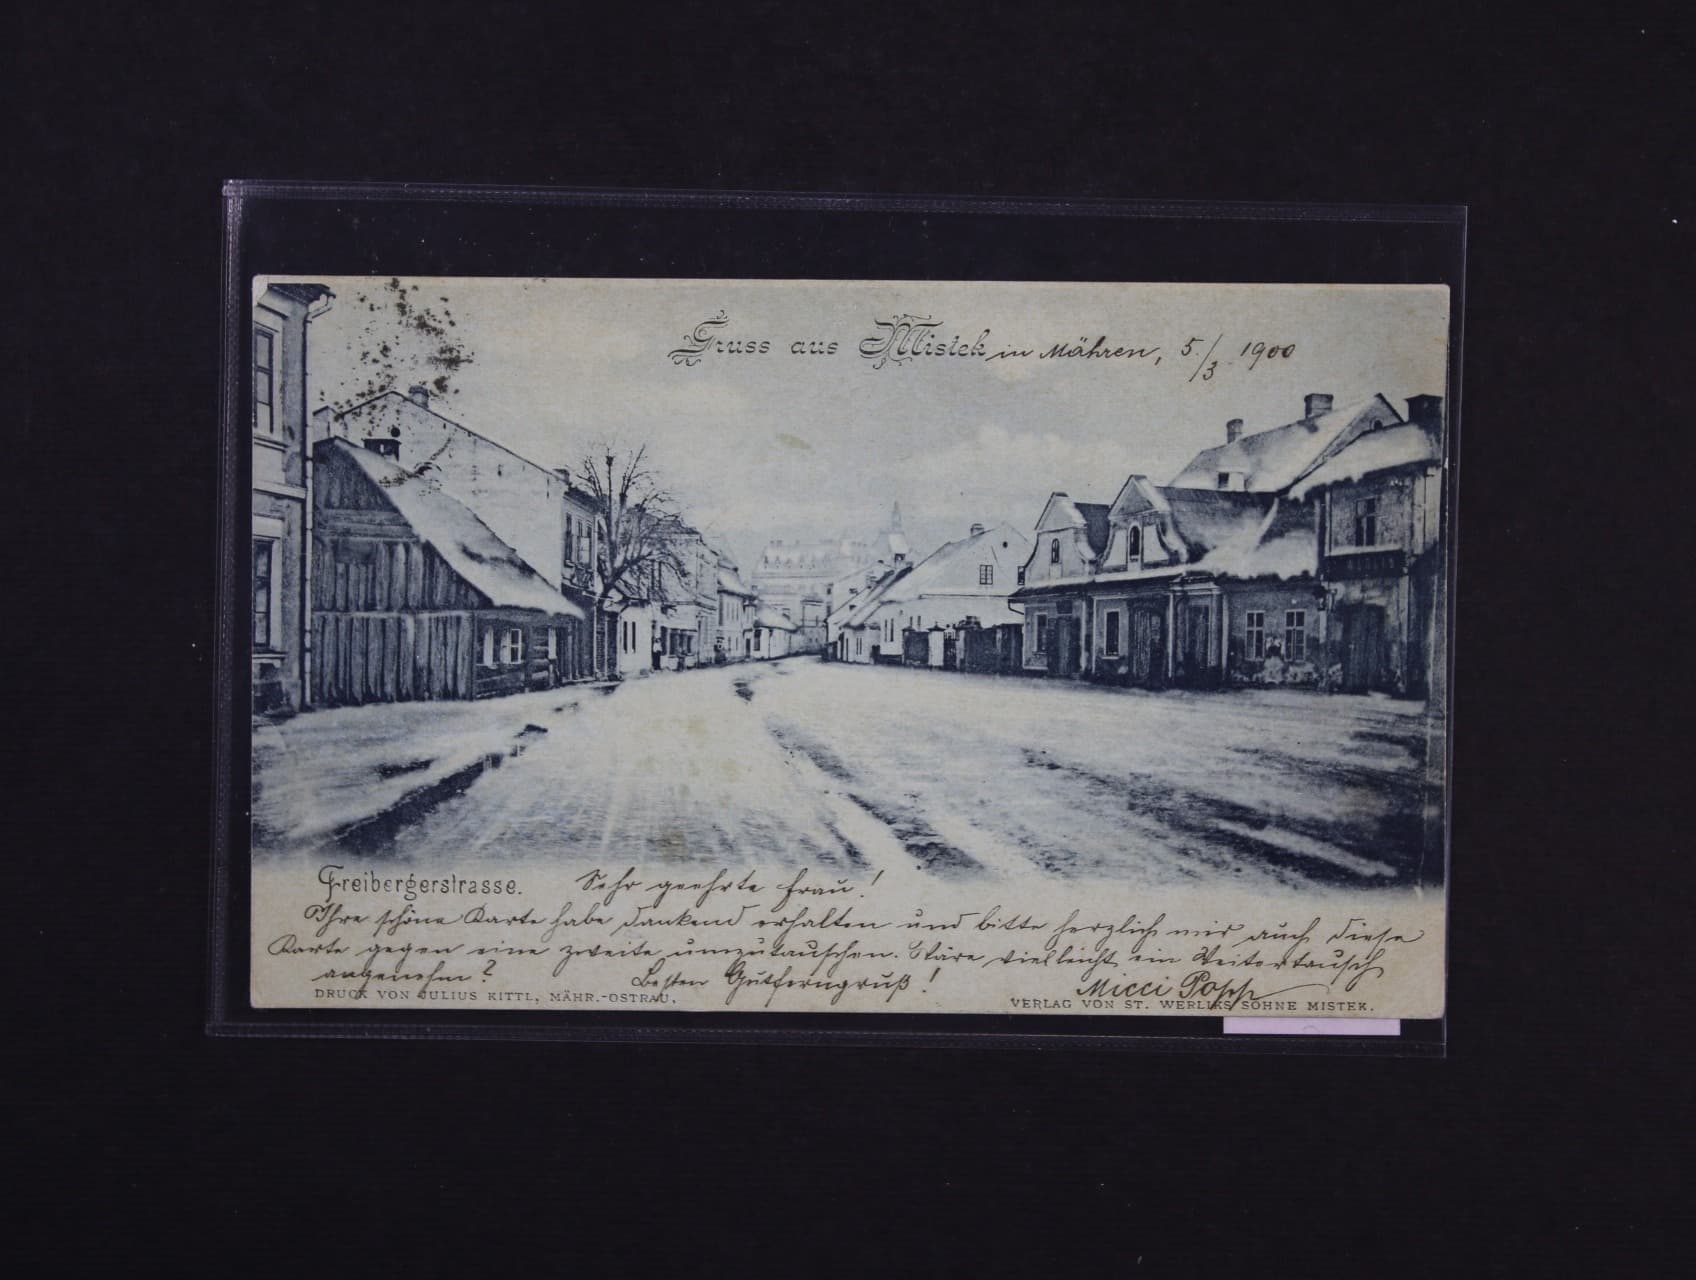 Gruss aus Mistek in Mähren, 5./3. 1900
Freibergerstrasse. Sehr geehrte Frau!
Ihre schöne Karte habe dankend erhalten und bitte herzlich mir auch diese
Karte gegen eine zweite umzutauschen. Wäre vielleicht ein Weitertausch
angenehm? Besten Gutferngruß! Micci Popp
DRUCK VON JULIUS KITTL, MÄHR.-OSTRAU. VERLAG VON ST. WERLIKS SÖHNE MISTEK.